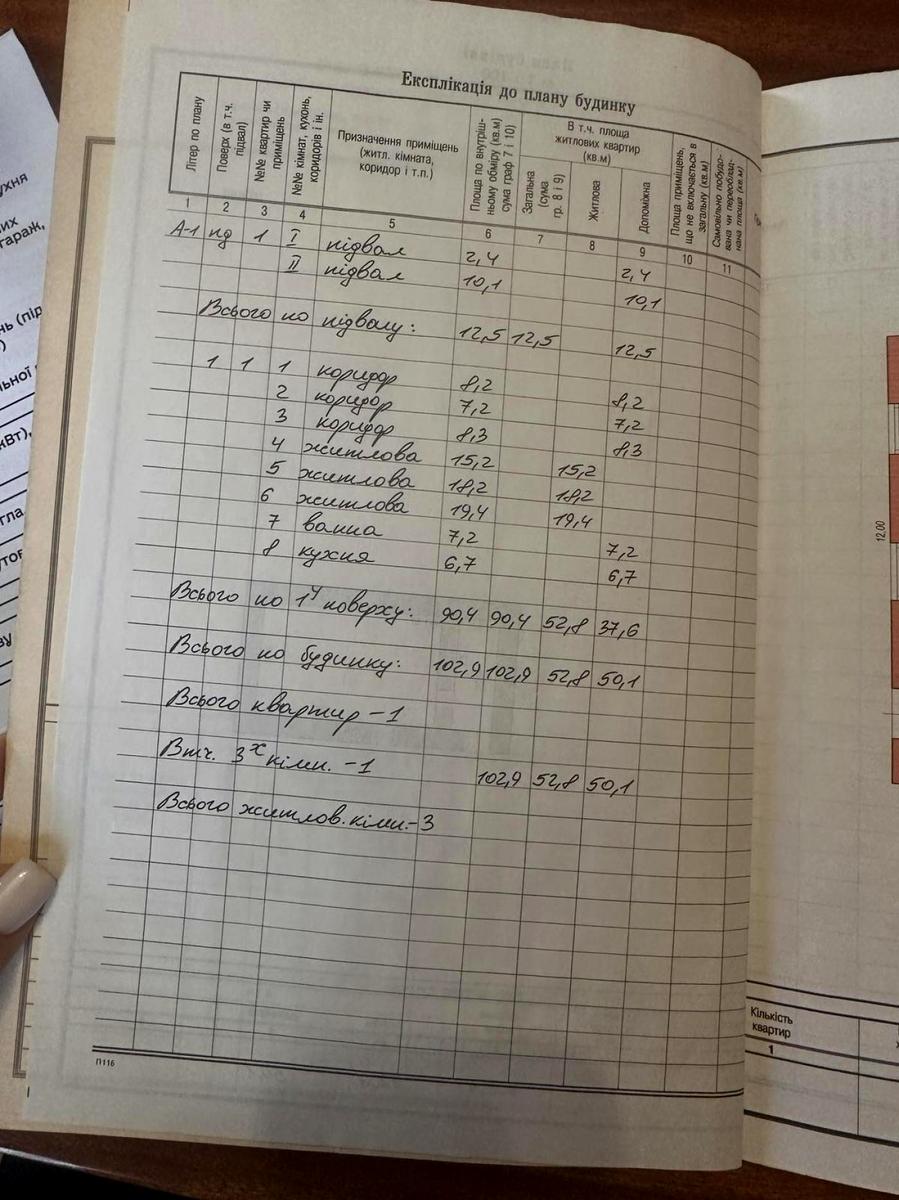 Експлікація до плану будинку
Літер по плану
Поверх (в т.ч. підвал)
№№ квартир чи приміщень
№№ кімнат, кухонь, коридорів і ін.
Призначення приміщень (житл. кімната, коридор і т.п.)
Площа по внутрішньому обміру (кв.м) сума граф 7 і 10)
В т.ч. площа житлових квартир (кв.м)
Загальна (сума гр. 8 і 9)
Житлова
Допоміжна
Площа приміщень, що не включається в загальну (кв.м)
Самовільно побудована чи переобладнана площа (кв.м)
1 2 3 4 5 6 7 8 9 10 11
А-1 пд 1 I підвал 2,4 2,4
II підвал 10,1 10,1
Всього по підвалу: 12,5 12,5 12,5
1 1 1 коридор 8,2 8,2
2 коридор 7,2 7,2
3 коридор 8,3 8,3
4 житлова 15,2 15,2
5 житлова 18,2 18,2
6 житлова 19,4 19,4
7 ванна 7,2 7,2
8 кухня 6,7 6,7
Всього по 1у поверху: 90,4 90,4 52,8 37,6
Всього по будинку: 102,9 102,9 52,8 50,1
Всього квартир -1
Втч. 3х кімн. -1 102,9 52,8 50,1
Всього житлов. кімн.-3
П116
ухня
гараж,
кВт),
12,00
Кількість
квартир
1